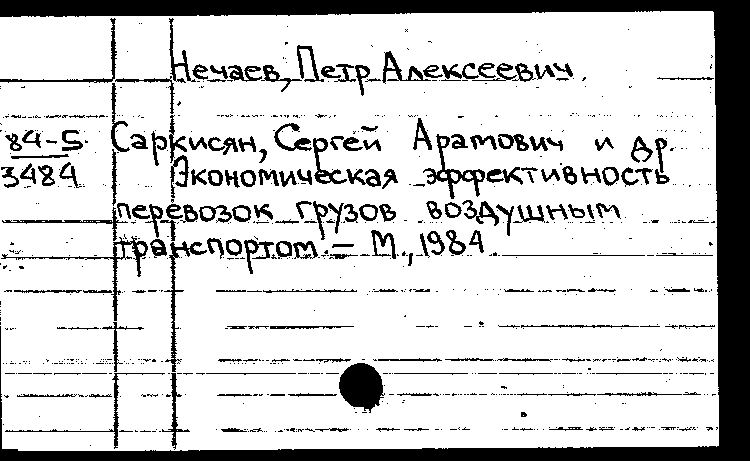 Нечаев, Петр Алексеевич.
84-5 Саркисян, Сергей Арамович и др.
3484 Экономическая эффективность
перевозок грузов воздушным
транспортом. – М., 1984.